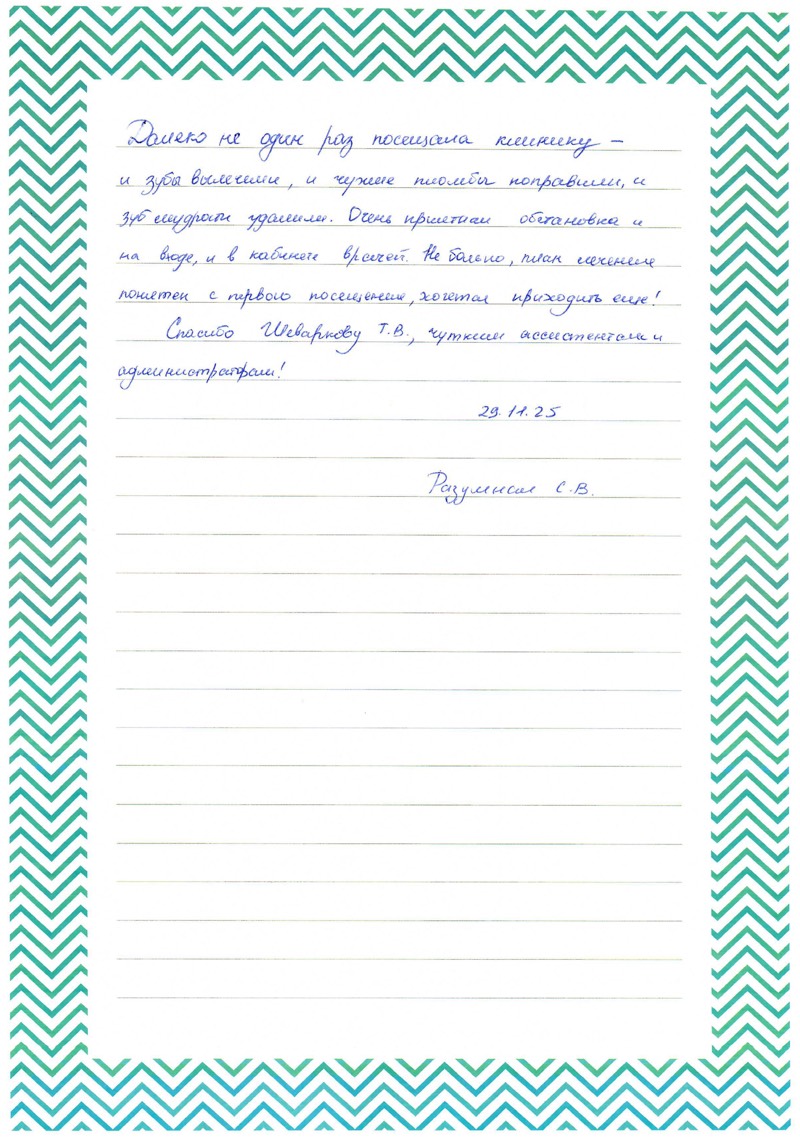 Далеко не один раз посещала клинику –
и зубы вылечили, и чужие пломбы поправили, и
зуб мудрости удалили. Очень приятная обстановка и
на входе, и в кабинете врачей. Не больно, план лечения
понятен с первого посещения, хочется приходить еще!
Спасибо Шеваркову Т.В., чутким ассистентам и
администраторам!
29.11.25
Разумная С.В.